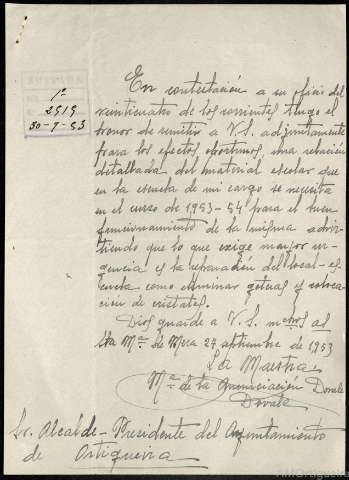 1º
2519
30-9-53
En contestación a su oficio del
veinticuatro de los corrientes tengo el
honor de remitir a V.S. adjuntamente
para los efectos oportunos, una relación
detallada del material escolar que
en la escuela de mi cargo se necesita
en el curso de 1953-54 para el buen
funcionamiento de la misma advir-
tiendo que lo que exige mayor ur-
gencia es la reparación del local-es-
cuela como eliminar goteras y coloca-
ción de cristales.
Dios guarde a V.S. mchos as
Sta Mª de Mera 27 septiembre de 1953
La Maestra
Mª de la Anunciación Dovale
Dovale
Sr. Alcalde-Presidente del Ayuntamiento
de Ortigueira